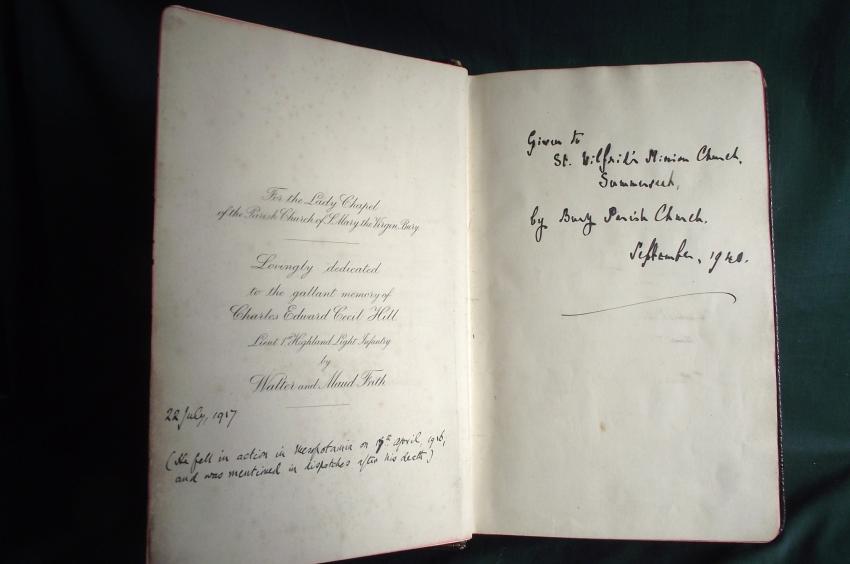 For the Lady Chapel
of the Parish Church of S. Mary the Virgin, Bury
Lovingly dedicated
to the gallant memory of
Charles Edward Cecil Hill
Lieut 1st Highland Light Infantry
by
Walter and Maud Frith
22 July, 1917
(He fell in action in Mesopotamia on April, 1916,
and was mentioned in dispatches after his death)
Given to
St. Wilfrid's Mission Church,
Summerseat,
by Bury Parish Church.
September, 1940.